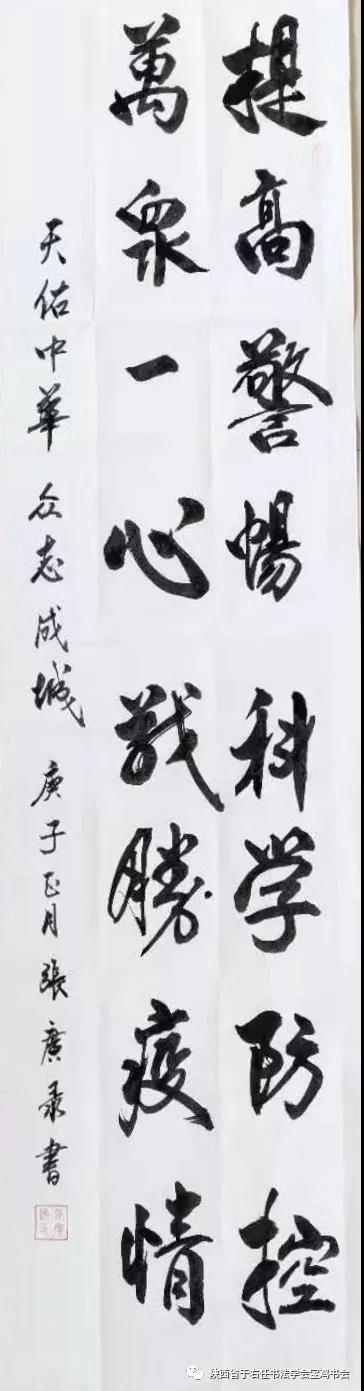 提高警惕科学防控
萬衆一心戰勝疫情
天佑中華 众志成城 庚子正月 張廣录書
陕西省于右任书法学会宝鸡书会